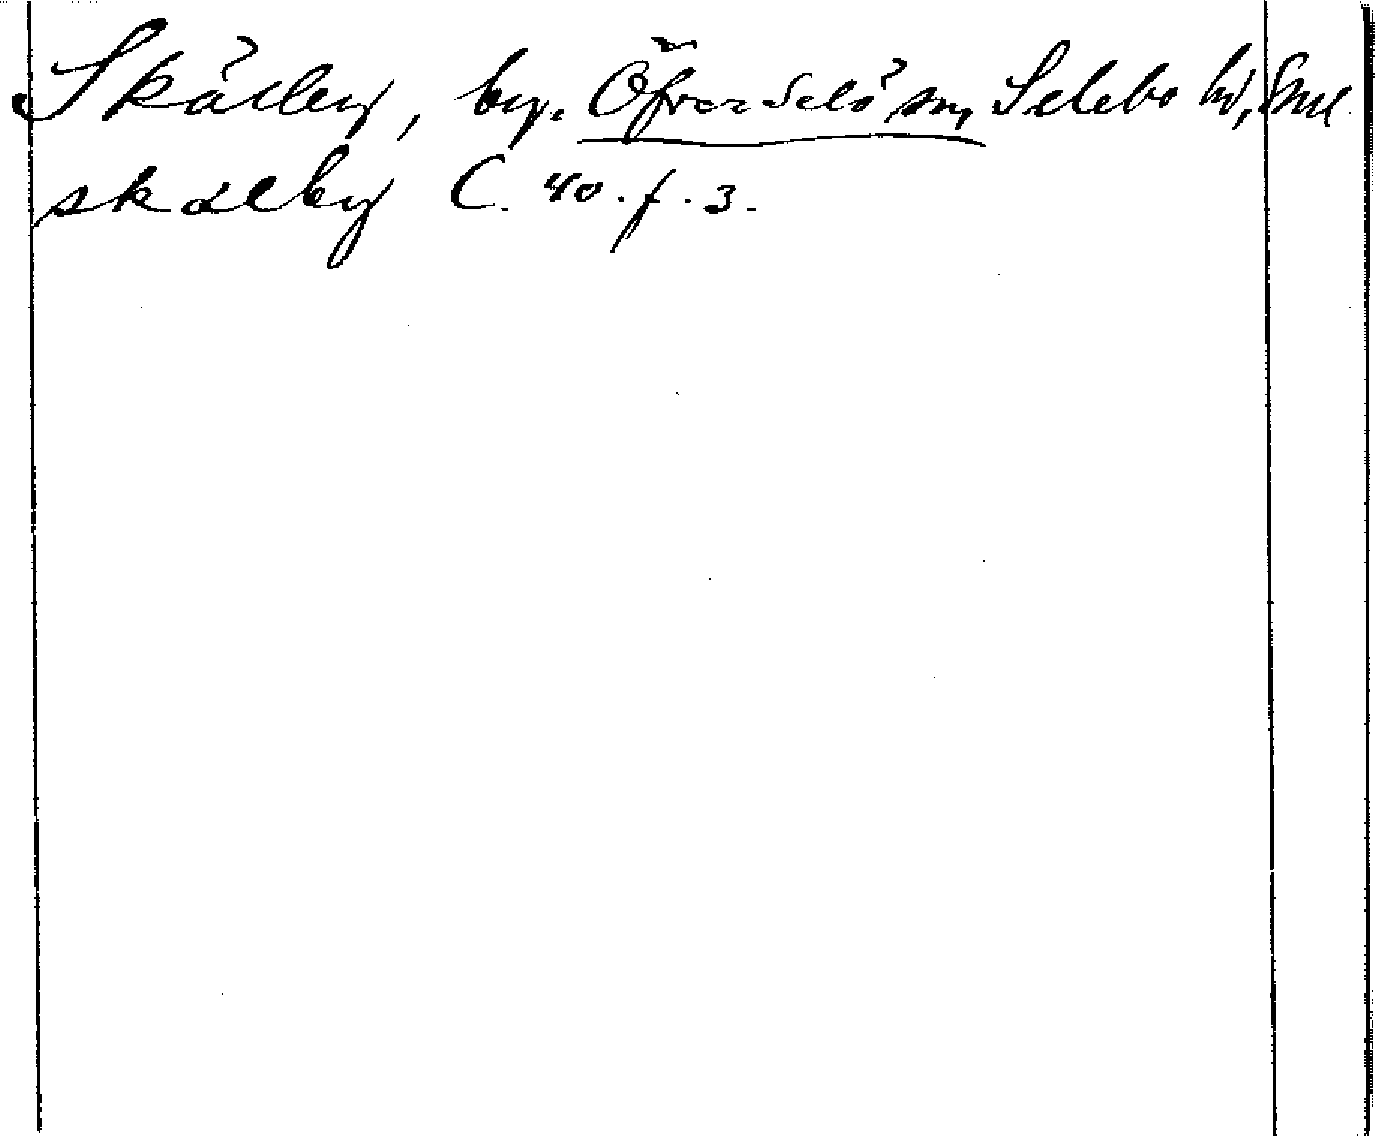 Skälby, by. Öfverselö sn, Selebo hd, Sml.
skælby C. 40. f. 3.